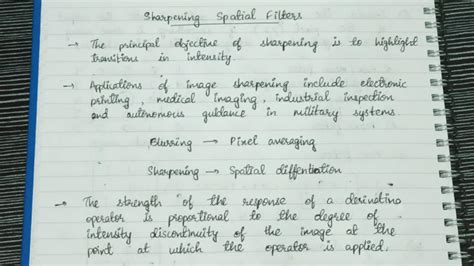 Sharpening Spatial Filters
→ The principal objective of sharpening is to highlight
transitions in intensity.
→ Applications of image sharpening include electronic
printing, medical imaging, industrial inspection
and autonomous guidance in military systems
Blurring → Pixel averaging
Sharpening → Spatial diffentiation
→ The strength of the response of a derivative
operator is proportional to the degree of
intensity discontinuity of the image at the
point at which the operator is applied.